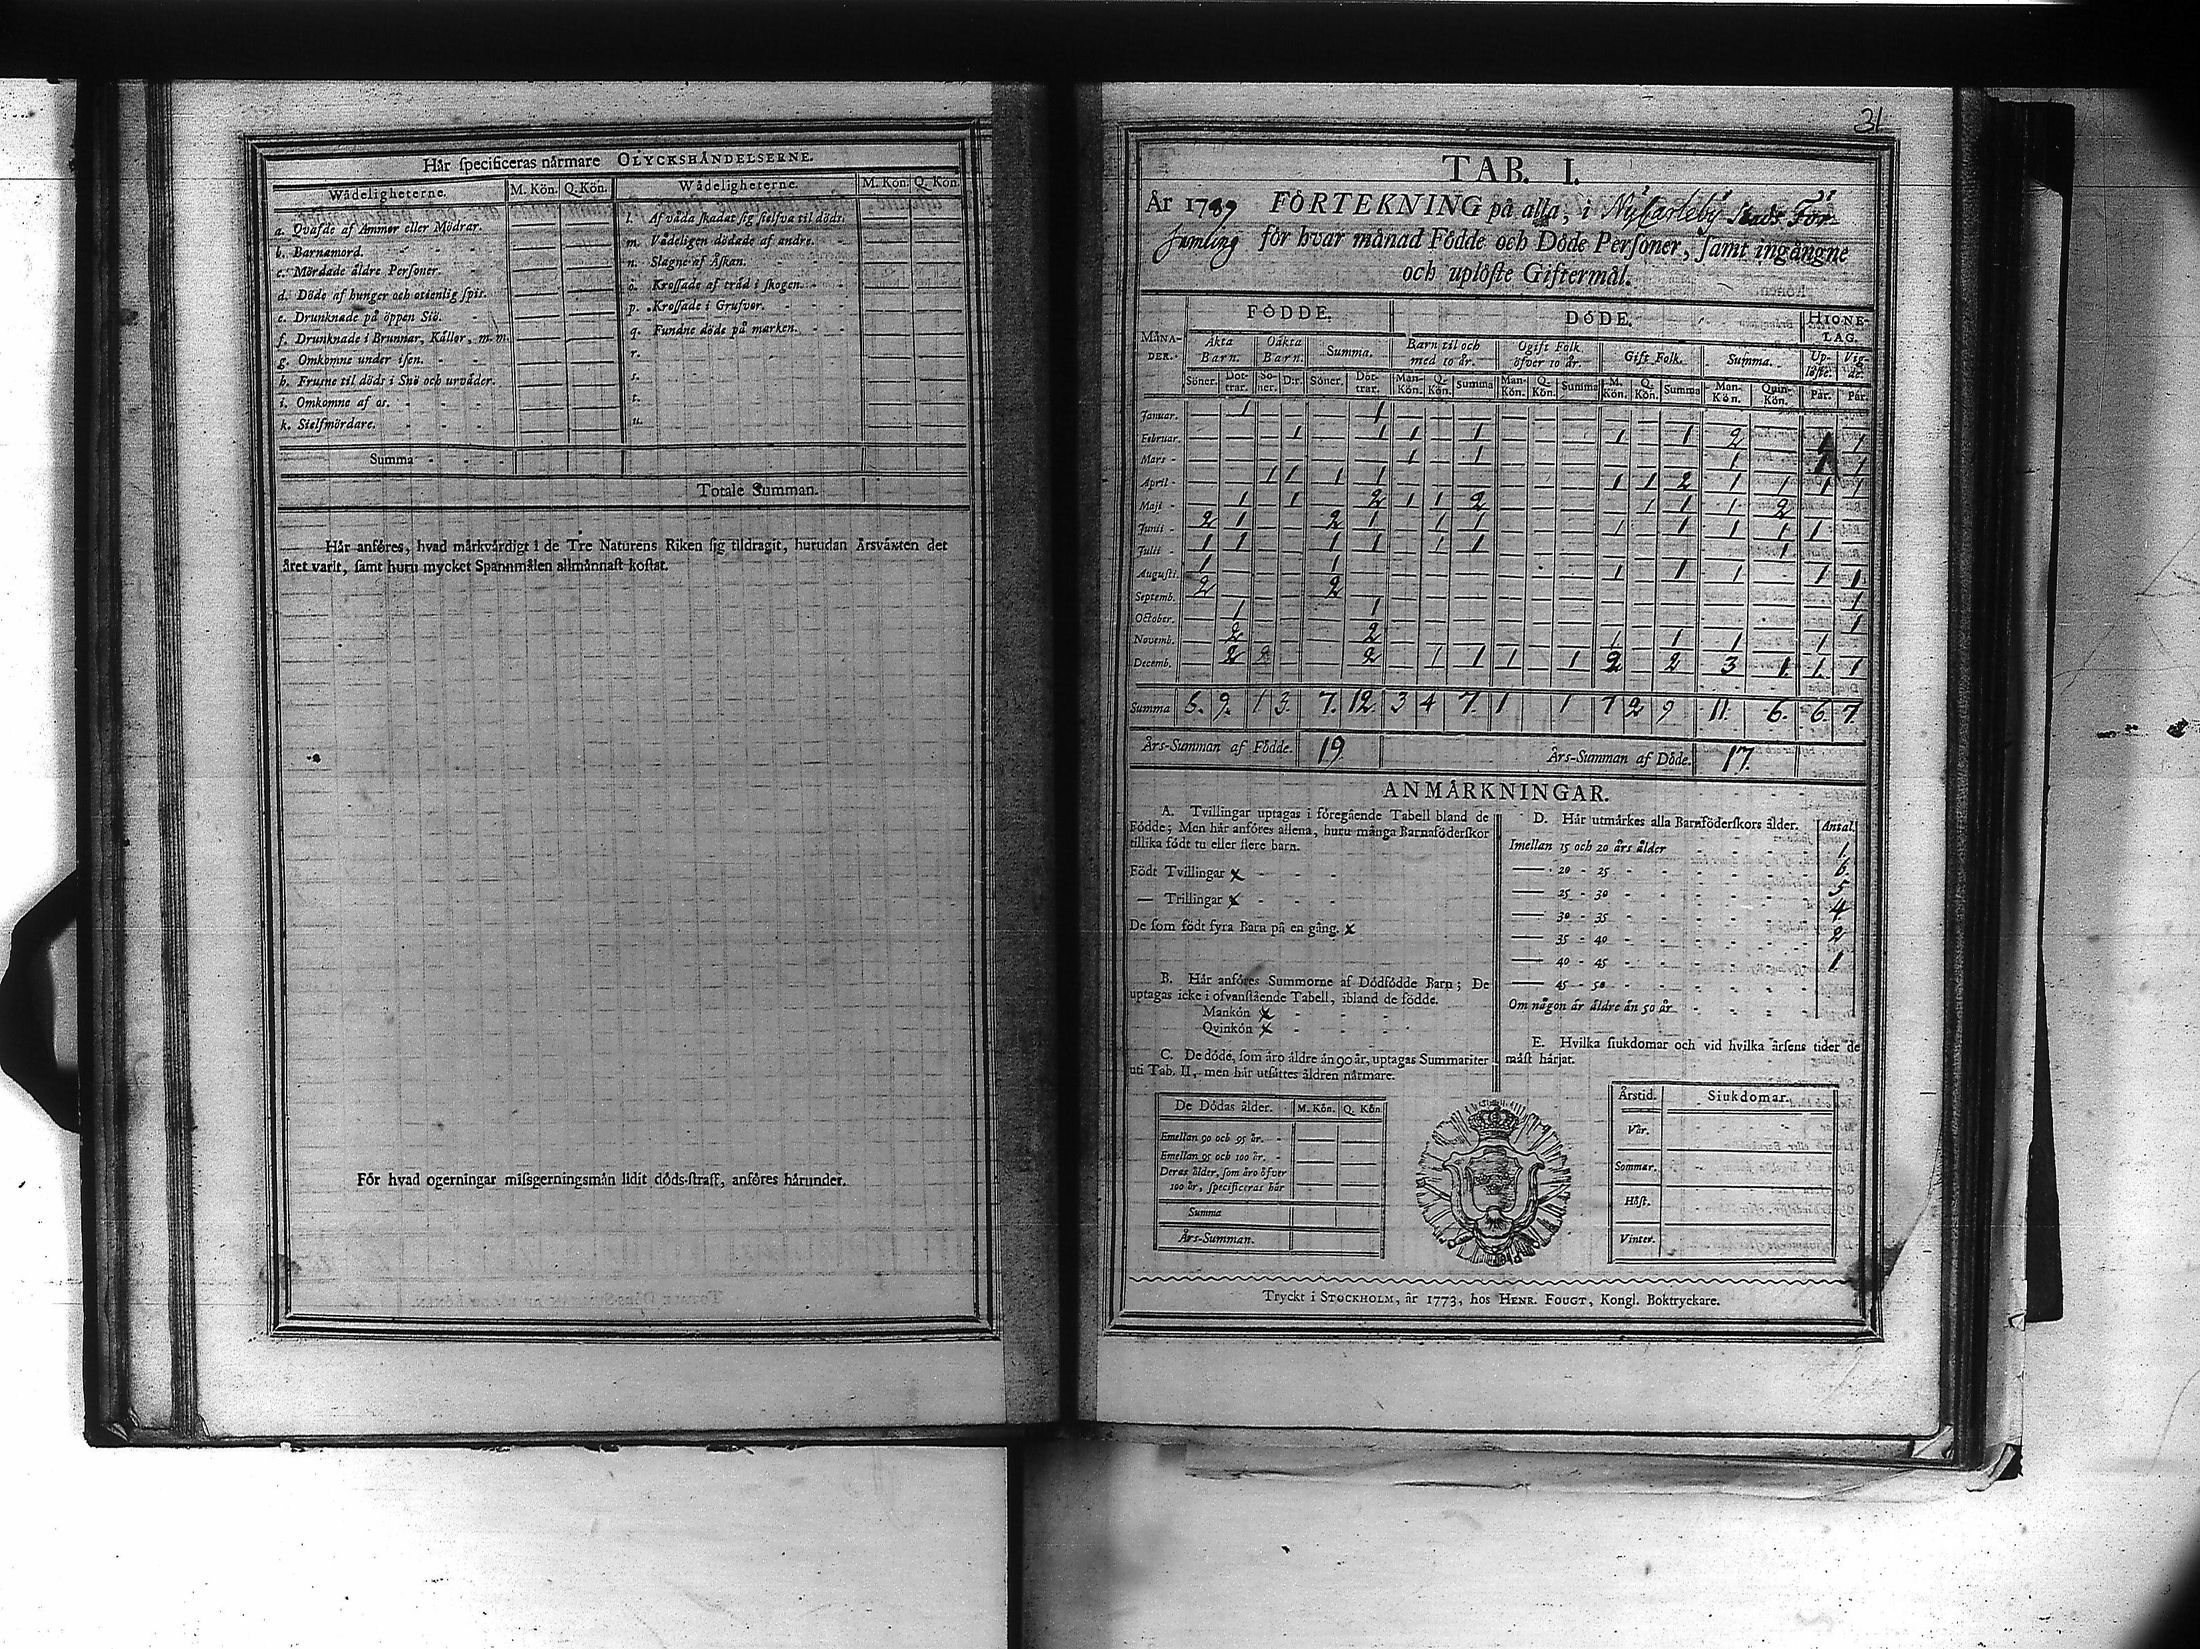 Hår ſpecificeras nårmare OLYCKSHÅNDELSERNE.
Wådeligheterne. M. Kön. Q. Kön. Wådeligheterne. M. Kön. Q. Kön.
a. Qväfde af Ammor eller Mödrar. — — l. Af våda ſkadat ſig ſielfva til döds. — —
b. Barnamord. — — m. Vådeligen dödade af andre. — —
c. Mördade åldre Perſoner. — — n. Slagne af Åſkan. — —
d. Döde af hunger och otienlig ſpis. — — o. Kroſſade af tråd i ſkogen. — —
e. Drunknade på öppen Siö. — — p. Kroſſade i Grufvor. — —
f. Drunknade i Brunnar, Kållor, m. m. — — q. Fundne döde på marken. — —
g. Omkomne under iſen. — — r. — —
h. Fruſne til döds i Snö och urväder. — — s. — —
i. Omkomne af os. — — t. — —
k. Sielfmördare. — — u. — —
Summa
Totale Summan.
Hår anföres, hvad mårkvårdigt i de Tre Naturens Riken ſig tildragit, hurudan Årsväxten det
året varit, ſamt huru mycket Spannmålen allmånnaſt koſtat.
För hvad ogerningar miſsgerningsmån lidit döds-ſtraff, anföres hårunder.
31
TAB. I.
År 1789 FÖRTEKNING på alla, i Nycarleby Stads För
ſamling för hvar månad Födde och Döde Perſoner, ſamt ingångne
och uplöſte Giftermål.
FÖDDE. DÖDE. HIONE-LAG.
MÅNADER. Äkta Barn. Oäkta Barn. Summa. Barn til och med 10 år. Ogift Folk öfver 10 år. Gift Folk. Summa. Uplöſte. Vigde.
Söner. Döttrar. Söner. D:r. Söner. Döttrar. Man-Kön. Q. Kön. Summa Man-Kön. Q. Kön. Summa M. Kön. Q. Kön. Summa Man-Kön. Quin-Kön. Pår. Pår.
Januar. — 1 — — — 1 — — — — — — — — — — — — —
Februar. — — — 1 — 1 1 — 1 — — — 1 — 1 2 — 1 1
Mars — — — — — — 1 — 1 — — — — — — 1 — 1 1
April — — 1 1 1 1 — — — — — — 1 1 2 1 1 1 1
Maji — 1 — 1 — 2 1 1 2 — — — — 1 1 1 2 — —
Junii 2 1 — — 2 1 — 1 1 — — — 1 — 1 1 1 1 —
Julii 1 1 — — 1 1 — 1 1 — — — — — — — 1 — —
Auguſti. 1 — — — 1 — — — — — — — 1 — 1 1 — 1 1
Septemb. 2 — — — 2 — — — — — — — — — — — — — 1
October. — 1 — — — 1 — — — — — — — — — — — — 1
Novemb. — 2 — — — 2 — — — — — — 1 — 1 1 — 1 —
Decemb. — 2 — — 2 — 1 1 1 — 1 2 — 2 3 1 1 1
Summa 6. 9. 1 3. 7. 12. 3 4 7. 1 1 7 2 9 11. 6. 6. 7.
Års-Summan af Födde. 19. Års-Summan af Döde. 17.
ANMÅRKNINGAR.
A. Tvillingar uptagas i föregående Tabell bland de
Födde; Men hår anföres allena, huru många Barnaföderſkor
tillika födt tu eller flere barn.
Födt Tvillingar x
— Trillingar x
De ſom födt fyra Barn på en gång. x
B. Hår anföres Summorne af Dödfödde Barn; De
uptagas icke i ofvanſtående Tabell, ibland de födde.
Mankön x
Qvinkön x
C. De döde, ſom åro åldre ån 90 år, uptagas Summariter
uti Tab. II, men hår utſåttes åldren nårmare.
De Dödas ålder. M. Kön. Q. Kön
Emellan 90 och 95 år. — —
Emellan 95 och 100 år. — —
Deras ålder, ſom åro öfver
100 år, ſpecificeras hår — —
Summa
Års-Summan.
D. Hår utmårkes alla Barnföderſkors ålder. Antal.
Imellan 15 och 20 års ålder 1.
— 20 - 25 6.
— 25 - 30 5
— 30 - 35 4.
— 35 - 40 2
— 40 - 45 1
— 45 - 50
Om någon år åldre ån 50 år
E. Hvilka ſiukdomar och vid hvilka årſens tider de
måſt hårjat.
Årstid. Siukdomar.
Vår.
Sommar.
Höſt.
Vinter.
Tryckt i STOCKHOLM, år 1773, hos HENR. FOUGT, Kongl. Boktryckare.